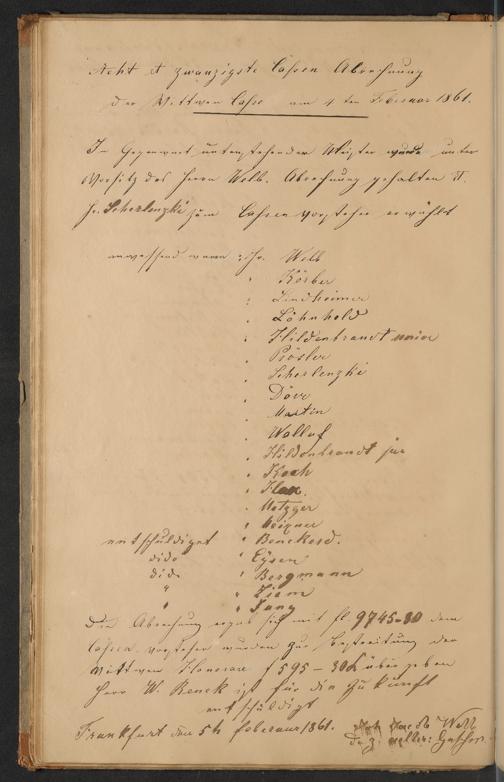 Acht et zwanzigste Cassen Abrechnung
der Wittwen Casse am 4ten Februar 1861.
In Gegenwart untenstehender Meister wurde unter
Vorsitz des Herrn Welb. Abrechnung gehalten u.
Hr. Scherlenzki zum Cassenvorsteher erwählt
anwessend waren: Hr. Welb
" Körber
" Lindheimer
" Löhnhold
" Hildenbrandt
" Rösler
" Scherlenzki
" Dörr
" Martin
" Wallof
" Hildenbrandt jun
" Koch
" Metzger
" Meixner
entschuldiget " Benckard.
dido " Eysen
did. " Bergmann
" "
" " Jung
Die Abrechnung ergab sich mit fl 9745-30 dem
Cassenvorsteher wurden zur Bestreitung der
Wittwen Honorare f 595 – 30 übergeben
Herr W. Renck ist für die Zukunft
entschuldigt
Frankfurt den 5t Februar 1861. Welb